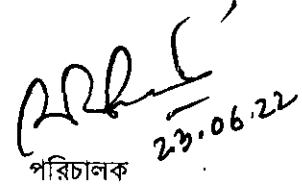 23.06.22
পরিচালক